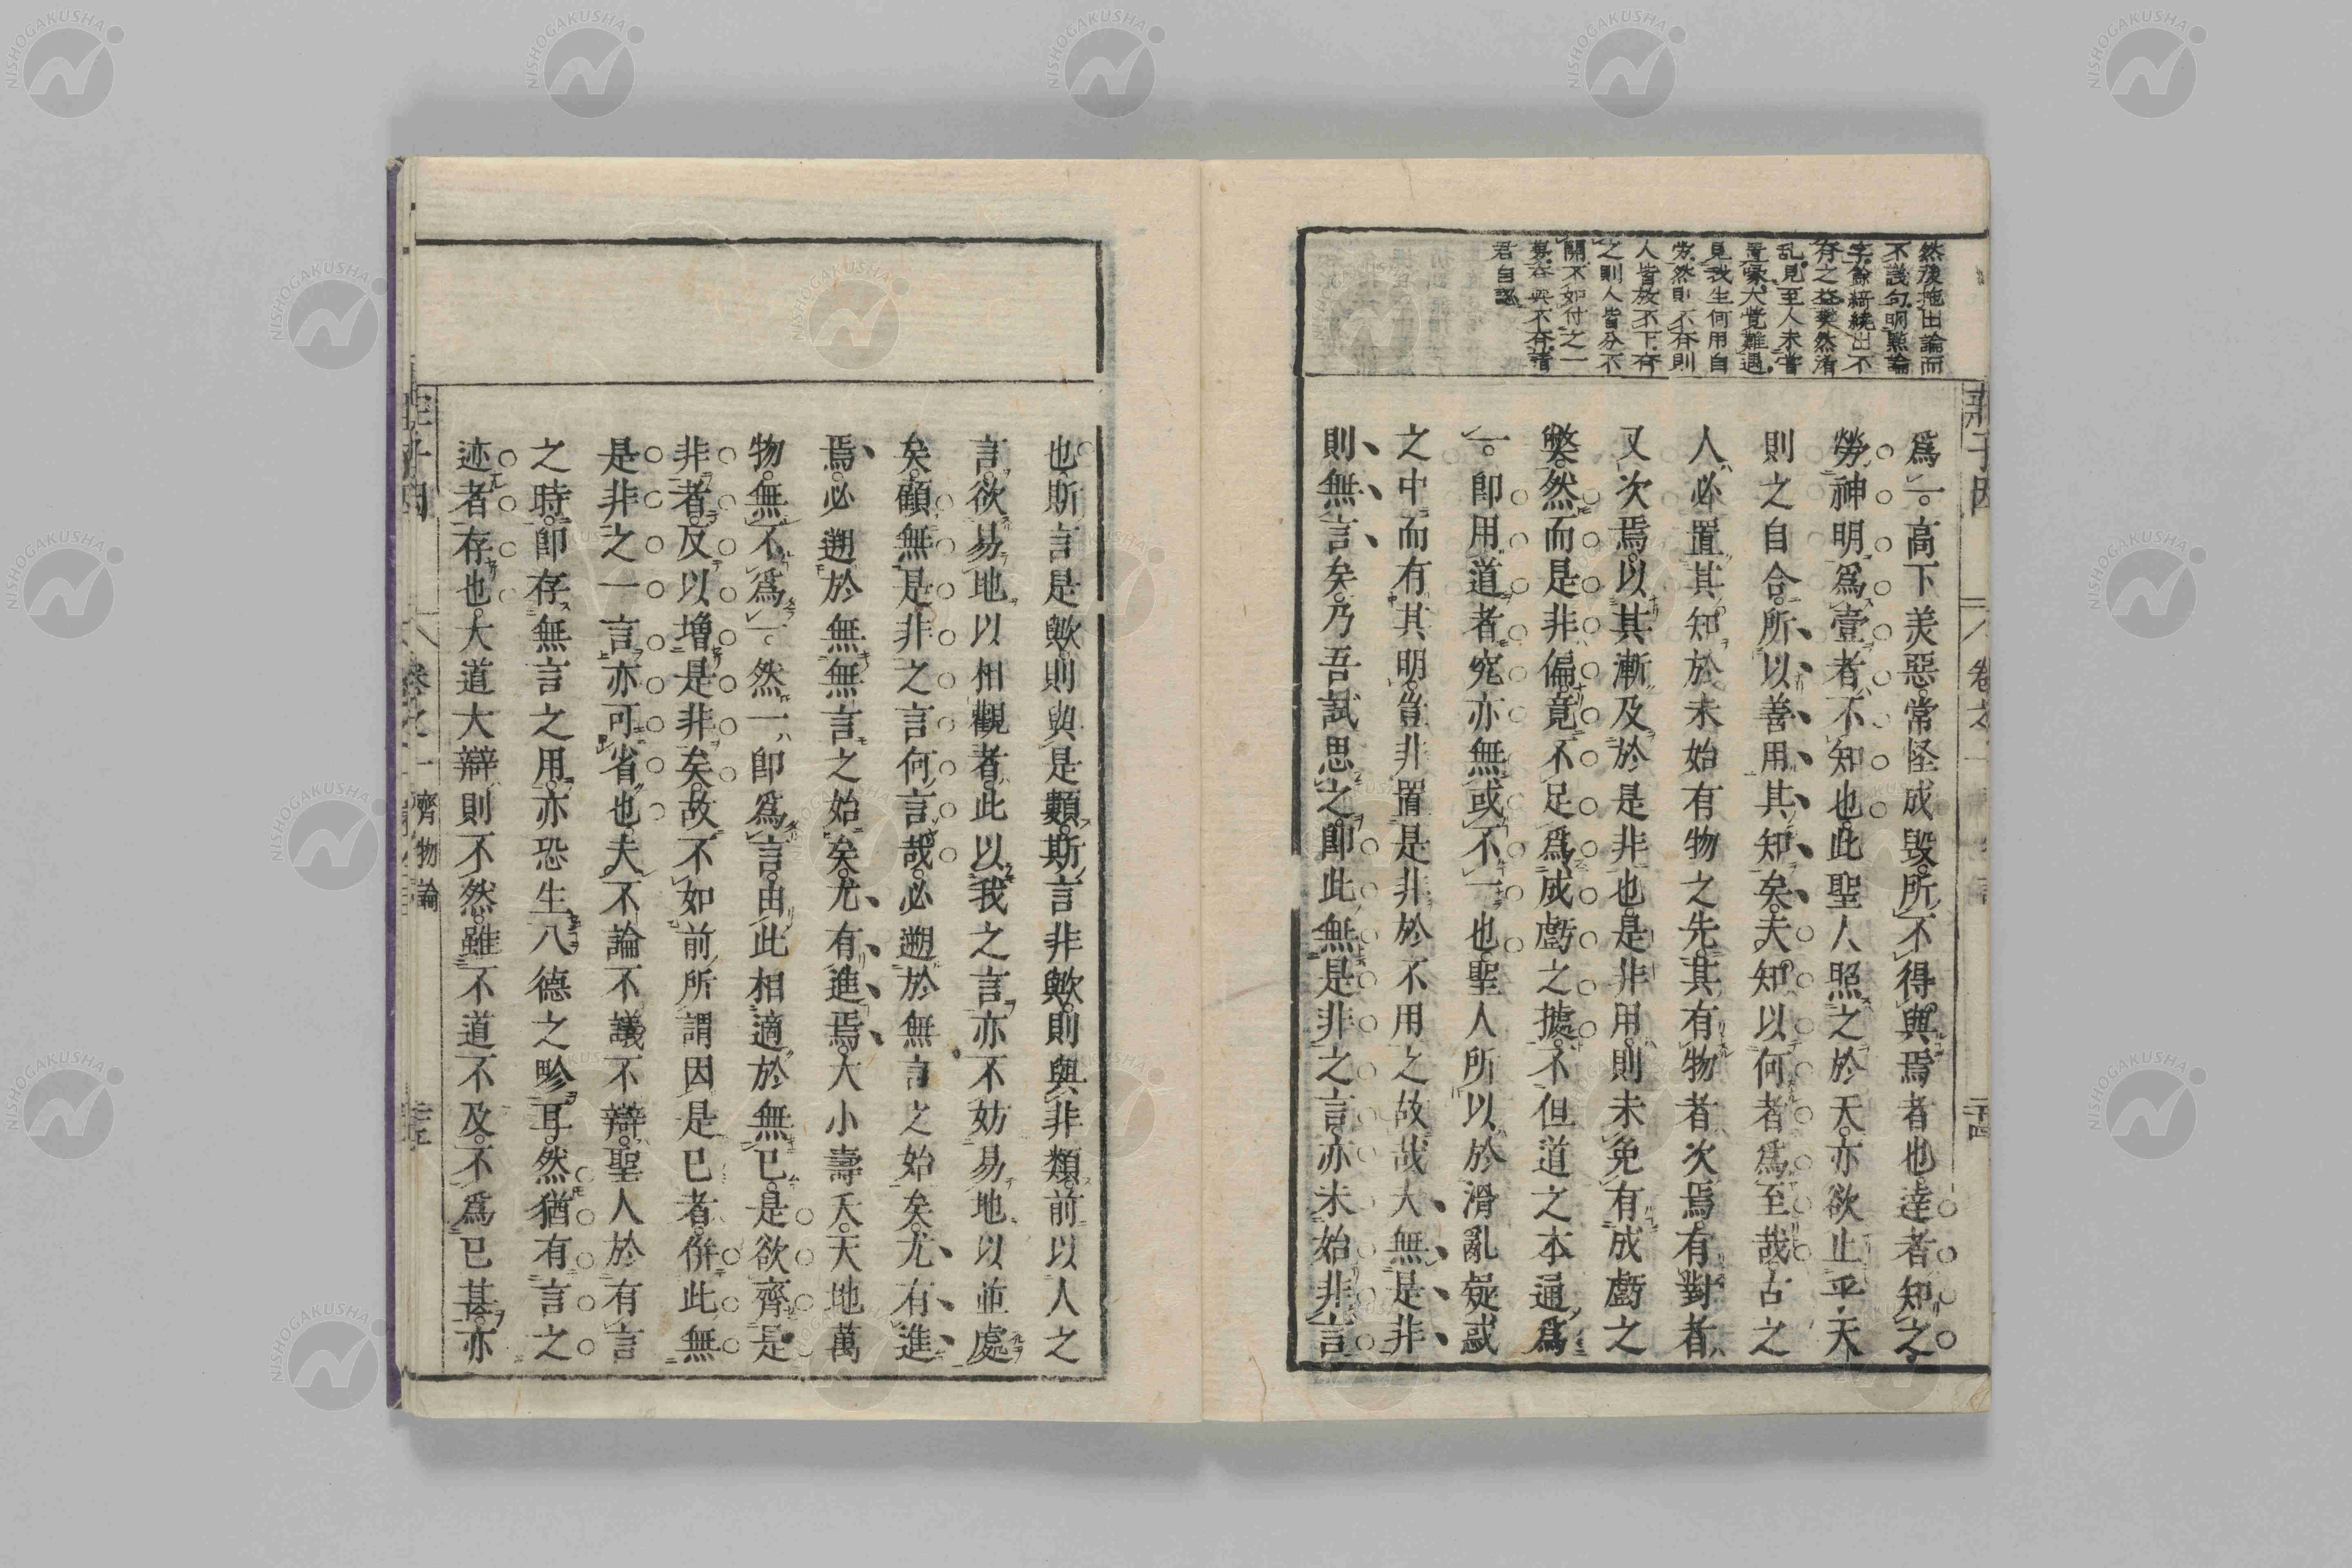 然後拖出論而
不議句明點論
字餘綺繞出不
存之益樊然淆
乱見至人未嘗
置喙大覚難遇
見我生何用自
労然則不存則
人皆放不下存
之則人皆分不
開不如付之一
君自認
爲一高下美惡常怪成毀所不得與焉者也達者知之
勞神明爲壹者不知也此聖人照之於天亦欲止乎天
則之自合所以善用其知矣夫知以何者爲至哉古之
人必置其知於未始有物之先其有物者次焉有對者
又次焉以其漸及於是非也是非用則未免有成虧之
獘然而是非偏竟不足爲成虧之據不但道之本通爲
一即用道者究亦無或不一也聖人所以於滑亂疑惑
之中而有其明豈非置是非於不用之故哉大無是非
則無言矣乃吾試思之即此無是非之言亦未始非言
莊子因
卷之一
二十四
也斯言是歟則與是類斯言非歟則與非類前以人之
言欲易地以相觀者此以我之言亦不妨易地以並處
矣顧無是非之言何言哉必遡於無言之始矣尤有進
焉必遡於無無言之始矣尤有進焉大小壽夭天地萬
物無不爲一然一即爲言由此相適於無已是欲齊是
非者反以增是非矣故不如前所謂因是已者併此無
是非之一言亦可省也夫不論不議不辯聖人於有言
之時即存無言之用亦恐生八德之畛耳然猶有言之
迹者存也大道大辯則不然雖不道不及不爲已甚亦
莊子因
卷之一
齊物論